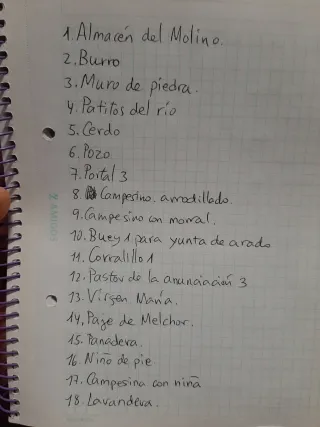 1. Almacén del Molino.
2. Burro
3. Muro de piedra.
4. Patitos del río
5. Cerdo
6. Pozo
7. Portal 3
8. Campesino arrodillado.
9. Campesino con morral.
10. Buey 1 para yunta de arado
11. Corralillo 1
12. Pastor de la anunciación 3
13. Virgen María.
14. Paje de Melchor.
15. Panadera.
16. Niño de pie
17. Campesina con niña
18. Lavandera.